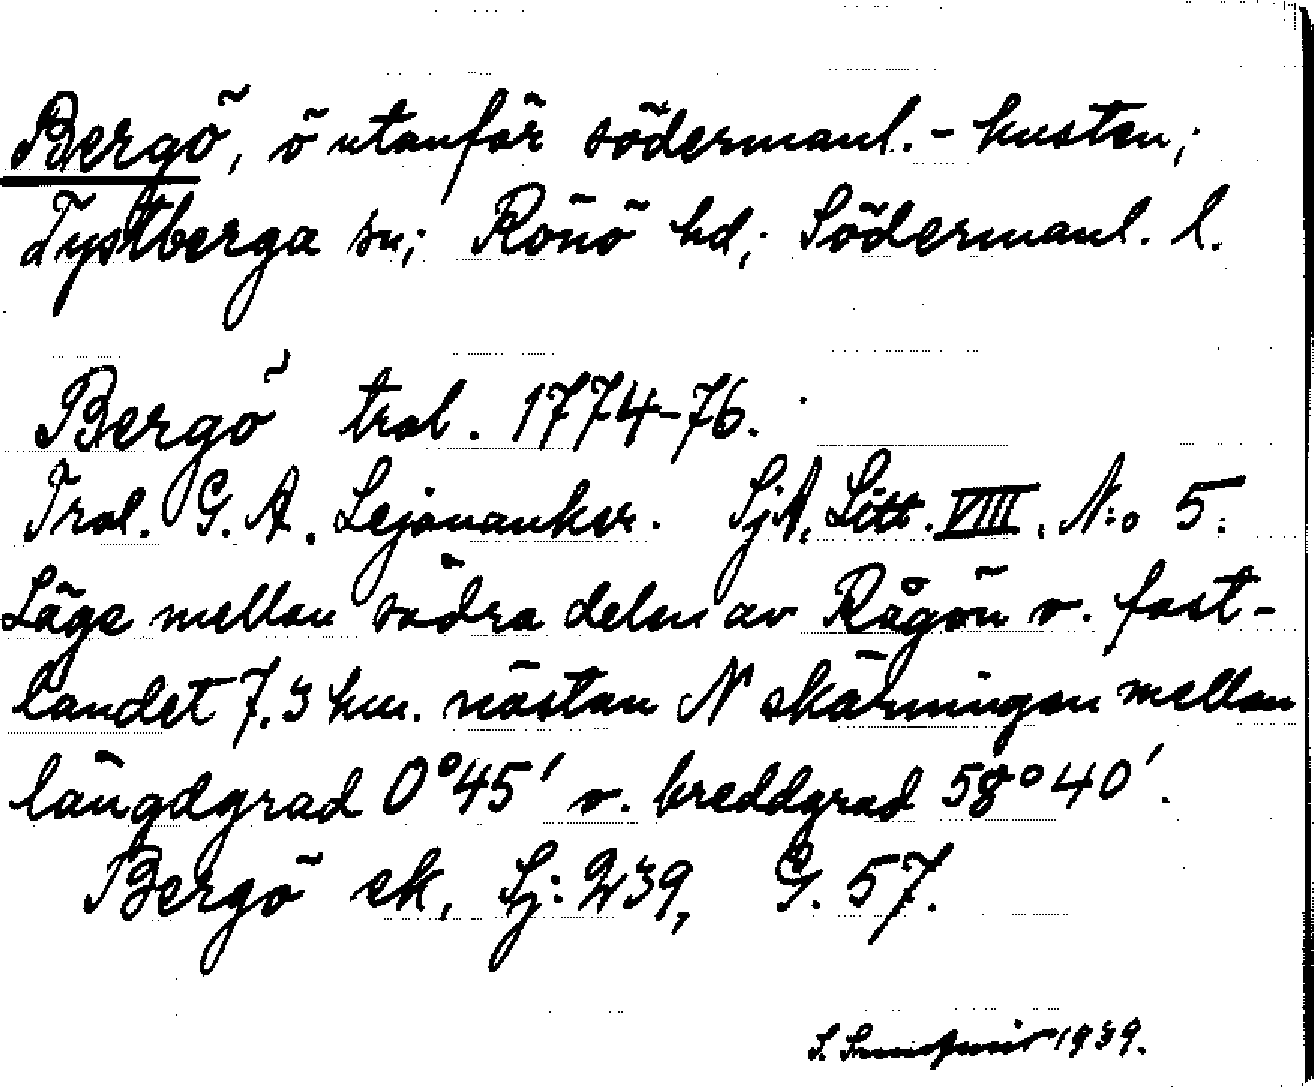 Bergö, ö utanför södermanl.-kusten;
Tystberga sn; Rönö hd; Södermanl. l.
Bergö trol. 1774-76.
Trol. G. A. Lejonanker. SjA, Litt. VIII. N:o 5.
Läge mellan södra delen av Rågön o. fast-
landet 7.3 km. nästan N skärningen mellan
längdgrad 0°45' o. breddgrad 58°40'.
Bergö ek, Sj: 239, G. 57.
S. 1939.